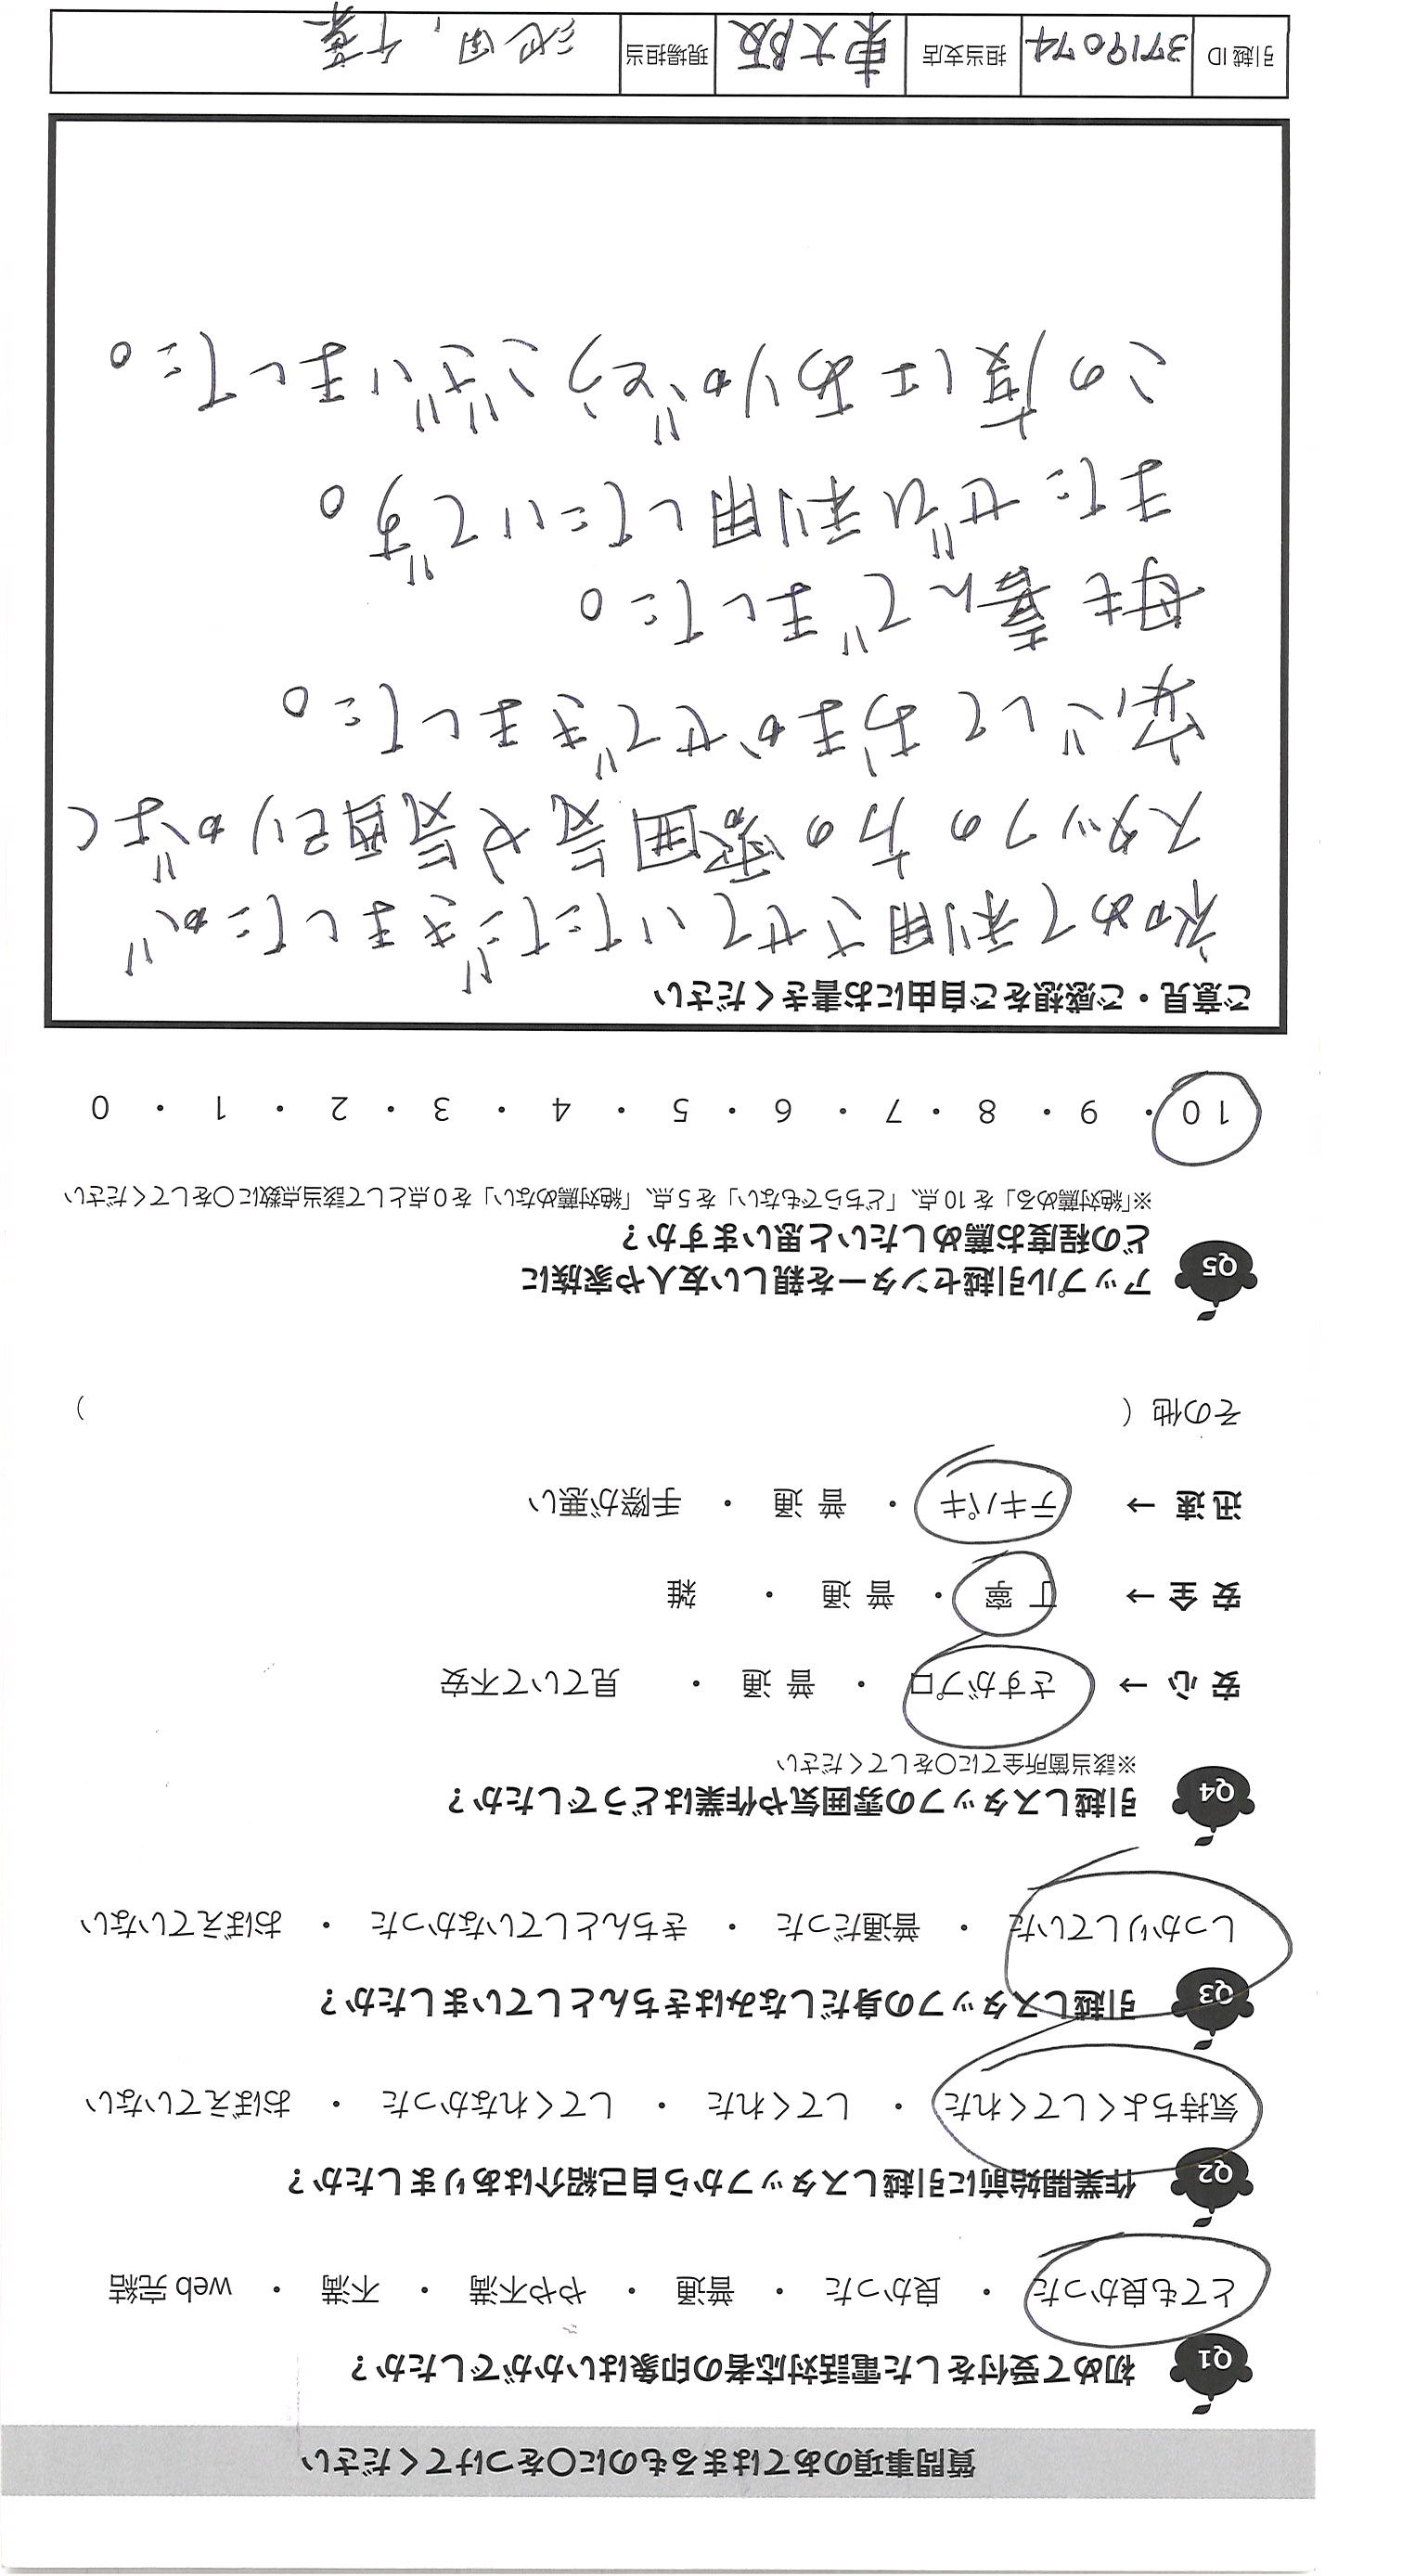 質問事項のあてはまるものに○をつけてください
Q1 初めて受付をした電話対応者の印象はいかがでしたか?
とても良かった ・ 良かった ・ 普通 ・ やや不満 ・ 不満 ・ web 完結
Q2 作業開始前に引越しスタッフから自己紹介はありましたか?
気持ちよくしてくれた ・ してくれた ・ してくれなかった ・ おぼえていない
Q3 引越しスタッフの身だしなみはきちんとしていましたか?
しっかりしていた ・ 普通だった ・ きちんとしていなかった ・ おぼえていない
Q4 引越しスタッフの雰囲気や作業はどうでしたか?
※該当箇所全てに○をしてください
安 心 → さすがプロ ・ 普 通 ・ 見ていて不安
安 全 → 丁 寧 ・ 普 通 ・ 雑
迅 速 → テキパキ ・ 普 通 ・ 手際が悪い
その他 ( )
Q5 アップル引越センターを親しい友人や家族に
どの程度お薦めしたいと思いますか?
※「絶対薦める」を 10 点、「どちらでもない」を 5 点、「絶対薦めない」を 0 点として該当点数に○をしてください
10 ・ 9 ・ 8 ・ 7 ・ 6 ・ 5 ・ 4 ・ 3 ・ 2 ・ 1 ・ 0
ご意見・ご感想をご自由にお書きください
初めて利用させていただきましたが
スタッフの方の雰囲気や段取りがよく
安心しておまかせできました。
母も喜んでました。
またぜひ利用したいです。
この度はありがとうございました。
引越 ID 3719074 担当支店 東大阪 現場担当 池田, 千葉